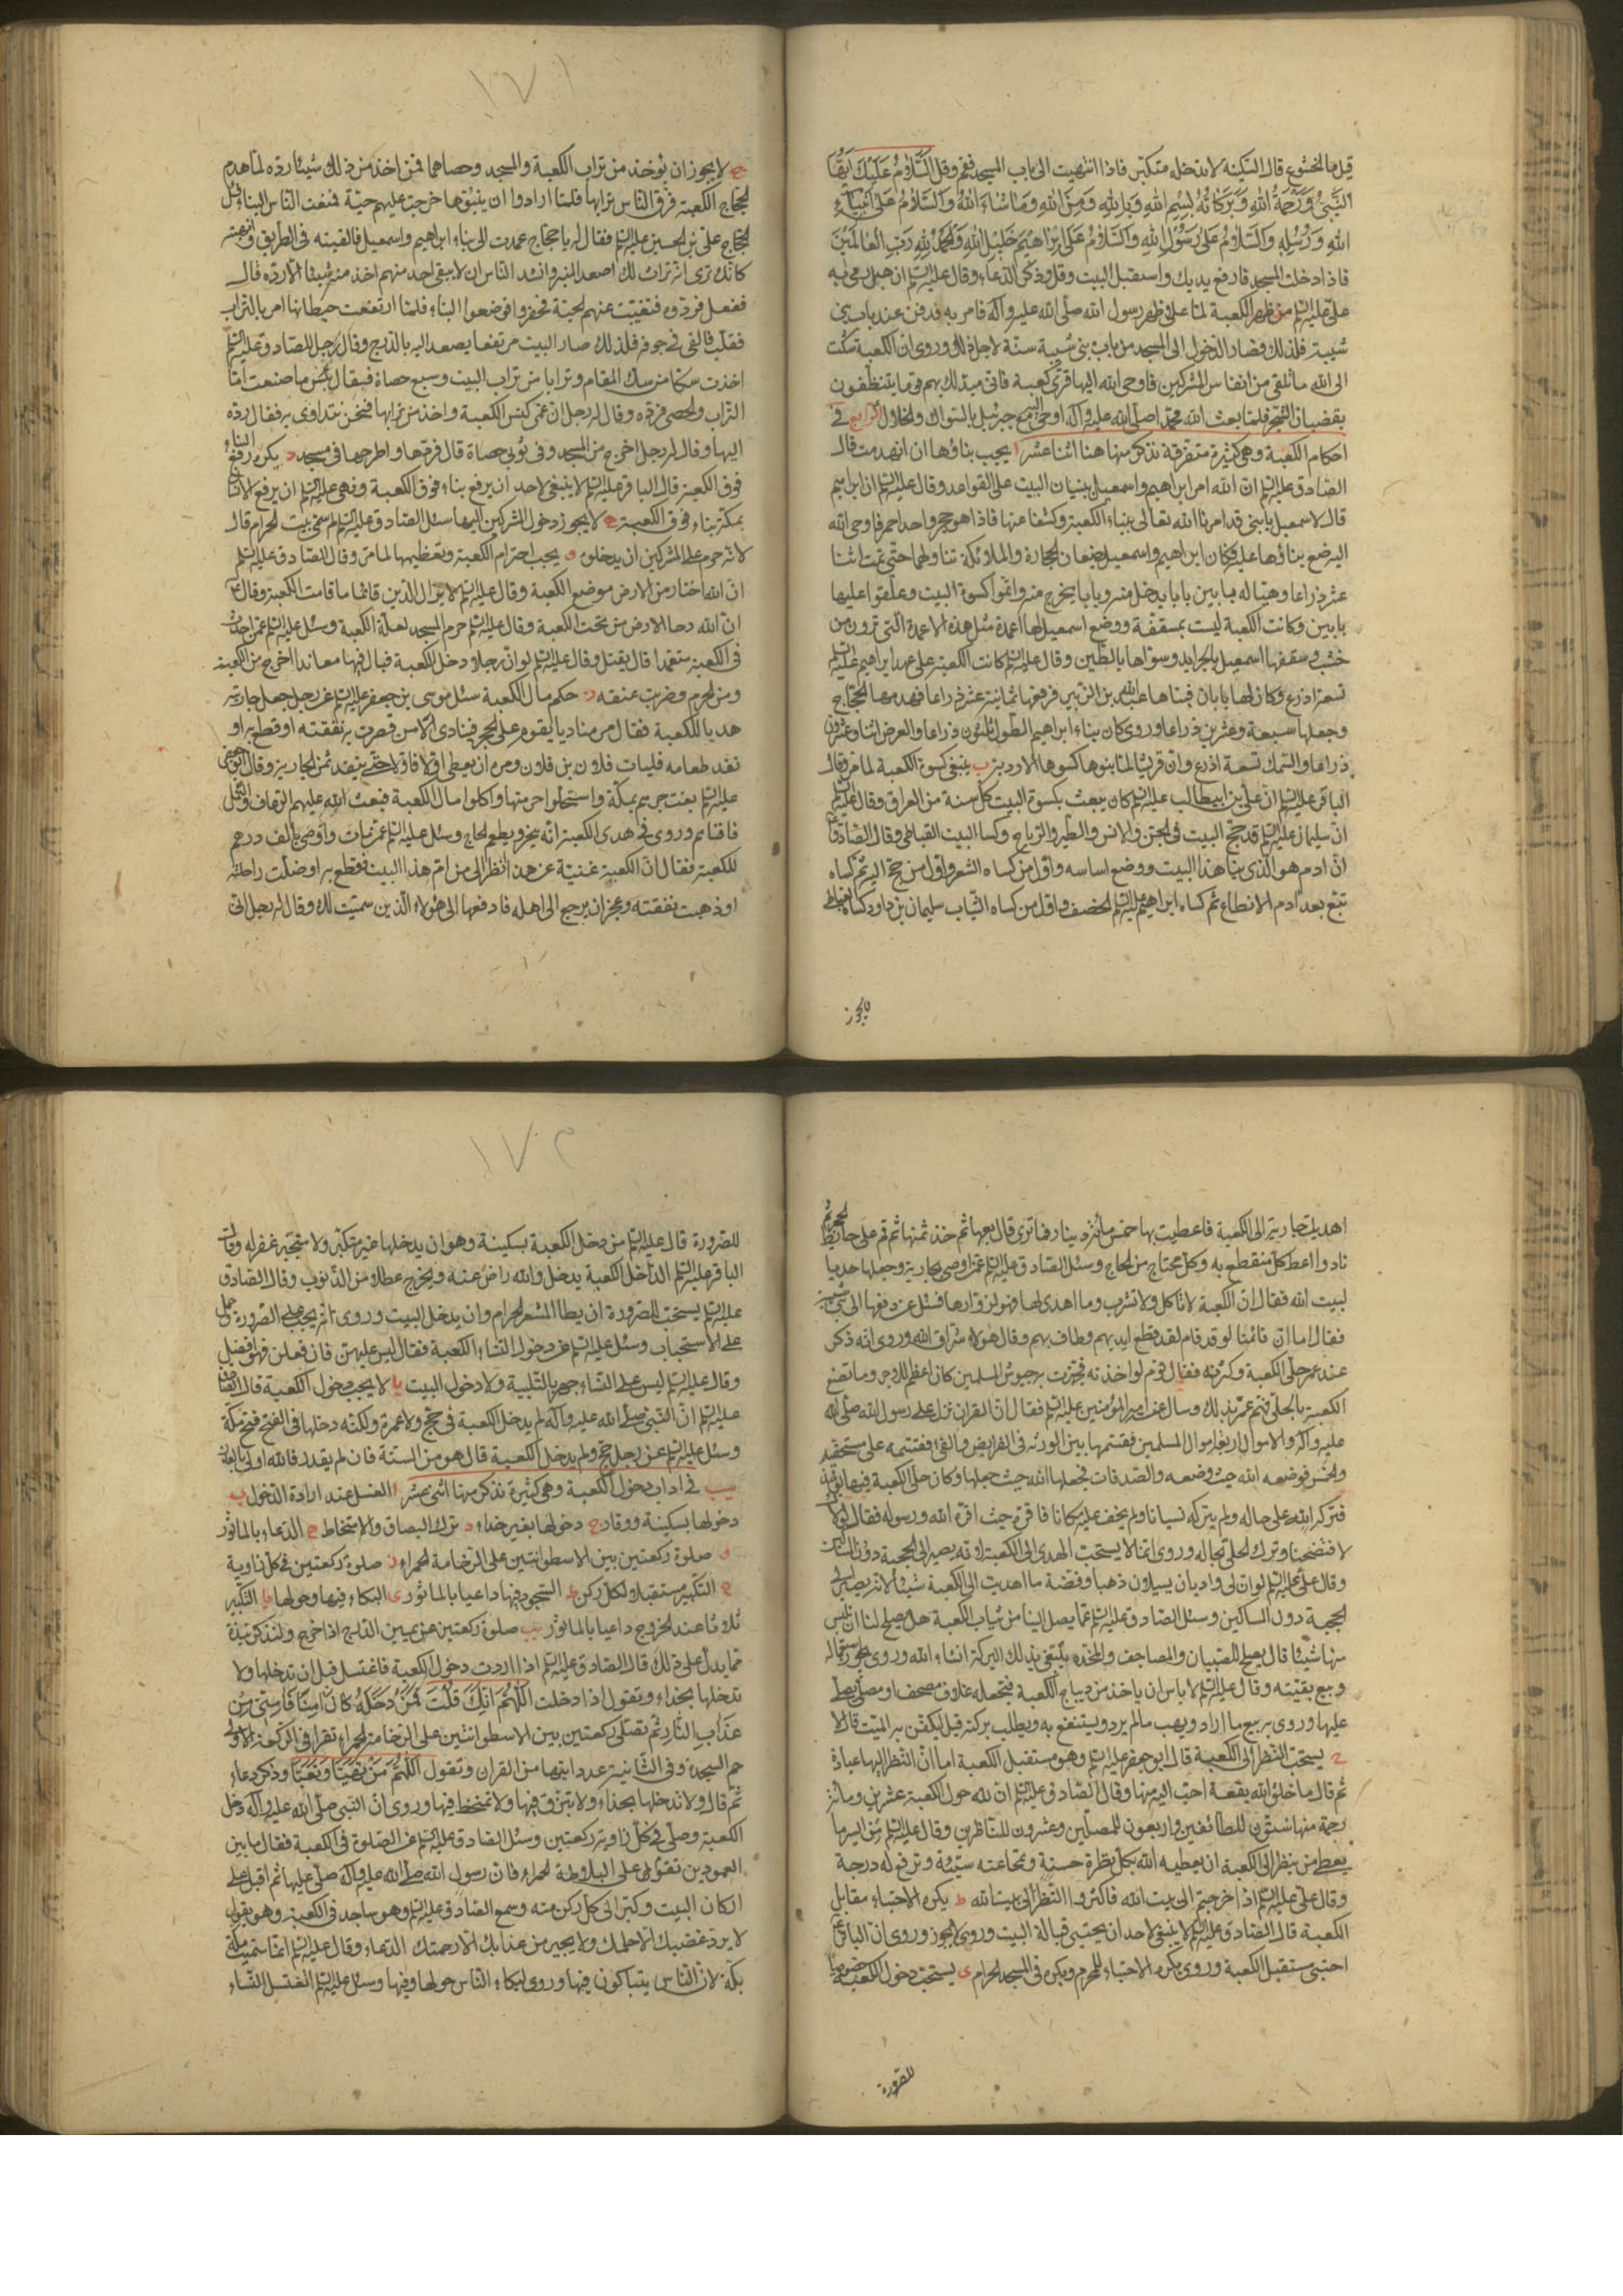 قيل ما الخشوع قال السكينة لا تدخله متكبر فاذا انتهيت الى باب المسجد فقم وقل السَّلَامُ عَلَيْكَ اَيُّهَا
النَّبِيُّ وَرَحْمَةُ اللهِ وَبَرَكَاتُهُ بِسْمِ اللهِ وَبِاللهِ وَمِنَ اللهِ وَمَا شَاءَ اللهُ وَالسَّلَامُ عَلَى اَنْبِيَاءِ
اللهِ وَرُسُلِهِ وَالسَّلَامُ عَلَى رَسُوْلِ اللهِ وَالسَّلَامُ عَلَى اِبْرَاهِيْمَ خَلِيْلِ اللهِ وَالْحَمْدُ لِلهِ رَبِّ الْعَالَمِيْنَ
فاذا دخلت المسجد فارفع يديك واستقبل البيت وقل وذكر الدعاء وقال عليه السلم ان هبل رمى به
على عليه السلم من ظهر الكعبة لما علا ظهر رسول الله صلى الله عليه وآله فامر به فدفن عند باب بنى
شيبة فلذلك فصار الدخول الى المسجد من باب بنى شيبة سنة لاجل ذلك وروى ان الكعبة شكت
الى الله ما تلقى من انفاس المشركين فاوحى الله اليها قرى كعبة فانى مبدلك بهم قوما يتنظفون
بقضبان الشجر فلما بعث الله محمدا صلى الله عليه وآله اوحى اليه مع جبرئيل بالسواك والخلال الرابع فى
احكام الكعبة وهى كثيرة متفرقة نذكر منها هنا اثنا عشر ا يجب بناؤها ان انهدمت قال
الصادق عليه السلم ان الله امر ابراهيم واسمعيل ببنيان البيت على القواعد وقال عليه السلم ان ابراهيم
قال لاسمعيل يا بنى قد امرنا الله تعالى ببناء الكعبة وكشفا عنها فاذا هو حجر واحد احمر فاوحى الله
اليه ضع بناؤها عليه فكان ابراهيم واسمعيل يضعان الحجارة والملائكة تناولهما حتى تمت اثنا
عشر ذراعا وهيئا له بابين بابا يدخل منه وبابا يخرج منه واتموا كسوة البيت وعلقوا عليها
بابين وكانت الكعبة ليست بمسقفة ووضع اسمعيل لها اعمدة مثل هذه الاعمدة التى ترون من
خشب وسقفها اسمعيل بالجرايد وسواها بالطين وقال عليه السلم كانت الكعبة على عهد ابراهيم عليه السلم
تسعة اذرع وكان لها بابان فبناها عبدالله بن الزبير فرفعها ثمانية عشر ذراعا فهدمها الحجاج
وجعلها سبعة وعشرين ذراعا وروى كان بناء ابراهيم الطول ثلثون ذراعا والعرض اثنا وعشرون
ذراعا والسمك تسعة اذرع وان قريشا لما بنوها كسوها الارديز ب ينبغى كسوة الكعبة لما مر وقال
الباقر عليه السلم ان على بن ابيطالب عليه السلم كان يبعث بكسوة البيت كل سنة من العراق وقال عليه السلم
ان سليمان عليه السلم قد حج البيت فى الجن والانس والطير والرياح وكسا البيت القباطى وقال الصادق
ان ادم هو الذى بنا هذا البيت ووضع اساسه واول من كساه الشعر واول من حج اليه ثم كساه
تبع بعد ادم الانطاع ثم كساه ابراهيم عليه السلم الخصف واول من كساه الثياب سليمان بن داود كساه القباطى
لا يجوز
١٧١
ج لا يجوز ان يؤخذ من تراب الكعبة والمسجد وحصاهما فمن اخذ من ذلك شيئا رده لما هدم
الحجاج الكعبة فرق الناس ترابها فلما ارادوا ان يبنوها خرجت عليهم حية فمنعت الناس البناء فسئل
الحجاج على بن الحسين عليه السلم فقال له يا حجاج عمدت الى بناء ابراهيم واسمعيل فالقيته فى الطريق وانتهبته
كانك ترى انه تراث لك اصعد المنبر وانشد الناس ان لا يبقى احد منهم اخذ منه شيئا الا رده قال
ففعل فردوه فتغيبت عنهم الحية فحفروا فوضعوا البناء فلما ارتفعت حيطانها امر بالتراب
فقلب فالقى فى جوفه فلذلك صار البيت مرتفعا يصعد اليه بالدرج وقال رجل للصادق عليه السلم
اخذت سكا من سك المقام وترابا من تراب البيت وسبع حصاة فقال بئس ما صنعت اما
التراب والحصى فرده وقال له رجل ان عمى كنس الكعبة واخذ من ترابها فنحن نتداوى به فقال رده
اليها وقال له رجل اخرج من المسجد وفى ثوبى حصاة قال فردها او اطرحها فى مسجد د يكره رفع البناء
فوق الكعبة قال الباقر عليه السلم لا ينبغى لاحد ان يرفع بناء فوق الكعبة ونهى عليه السلم ان يرفع الانسان
بمكة بناء فوق الكعبة ه لا يجوز دخول المشركين اليها سئل الصادق عليه السلم لم سمى بيت الحرام قال
لانه حرم على المشركين ان يدخلوه و يجب احترام الكعبة وتعظيمها لما مر وقال الصادق عليه السلم
ان الله اختار من الارض موضع الكعبة وقال عليه السلم لا يزال الدين قائما ما قامت الكعبة وقال
ان الله دحا الارض من تحت الكعبة وقال عليه السلم حرم المسجد لعلة الكعبة وسئل عليه السلم عمن احدث
فى الكعبة متعمدا قال يقتل وقال عليه السلم لو ان رجلا دخل الكعبة فبال فيها معاندا اخرج من الكعبة
ومن الحرم وضربت عنقه ز حكم مال الكعبة سئل موسى بن جعفر عليه السلم عن رجل جعل جاريته
هديا للكعبة فقال مر مناديا يقوم على الحجر فينادى الا من قصرت به نفقته او قطع به او
نفد طعامه فليات فلان بن فلان ومره ان يعطى اولا فاولا حتى ينفد ثمن الجارية وقال
عليه السلم بغت جرهم بمكة واستحلوا حرمتها واكلوا مال الكعبة فبعث الله عليهم الرعاف والنمل
فافناهم وروى فى هدى الكعبة انه ينحر ويطعم الحاج وسئل عليه السلم عمن مات واوصى بالف درهم
للكعبة فقال ان الكعبة غنية عن هذا انظر الى من ام هذا البيت فقطع به او ضلت راحلته
او ذهبت نفقته وعجز ان يرجع الى اهله فادفعها الى هؤلاء الذين سميت لك وقال له رجل انى
اهديت جارية الى الكعبة فاعطيت بها خمس مائة دينار فما ترى قال بعها ثم خذ ثمنها ثم قم على حائط الحجر ثم
ناد واعط كل منقطع به وكل محتاج من الحاج وسئل الصادق عليه السلم عمن اوصى بجارية وجعلها هديا
لبيت الله فقال ان الكعبة لا تاكل ولا تشرب وما اهدى لها فهو لزوارها فسئل عن دفعها الى بنى شيبة
فقال اما ان قائمنا لو قد قام لقد قطع ايديهم وطاف بهم وقال هؤلاء سراق الله وروى انه ذكر
عند عمر حلى الكعبة وكثرته فقال قوم لو اخذته فجهزت به جيوش المسلمين كان اعظم للاجر وما تصنع
الكعبة بالحلى فهم عمر بذلك وسال عنه امير المؤمنين عليه السلم فقال ان القران نزل على رسول الله صلى الله
عليه وآله والاموال اربعة اموال المسلمين فقسمها بين الورثة فى الفرايض والفىء فقسمه على مستحقيه
والخمس فوضعه الله حيث وضعه والصدقات فجعلها الله حيث جعلها وكان حلى الكعبة فيها يومئذ
فتركه الله على حاله ولم يتركه نسيانا ولم يخف عليه مكانا فاقره حيث اقره الله ورسوله فقال لولاك
لافتضحنا وترك الحلى بحاله وروى انما لا يستحب الهدى الى الكعبة لانه يصير الى الحجبة دون المساكين
وقال على عليه السلم لو ان لى واديان يسيلان ذهبا وفضة ما اهديت الى الكعبة شيئا لانه يصير الى
الحجبة دون المساكين وسئل الصادق عليه السلم عما يصل الينا من ثياب الكعبة هل يصلح لنا ان نلبس
منها شيئا قال يصلح للصبيان والمصاحف والمخده يبتغى بذلك البركة انشاء الله وروى يجوز استعماله
وبيع بقيته وقال عليه السلم لا باس ان ياخذ من ديباج الكعبة فيجعله غلاف مصحف او مصلى يصلى
عليها وروى بيع ما اراد ويهب مالم يرد ويستنفع به ويطلب بركته قيل ايكفن به الميت قال لا
ح يستحب النظر الى الكعبة قال ابو جعفر عليه السلم وهو مستقبل الكعبة اما ان النظر اليها عبادة
ثم قال ما خلق الله بقعة احب اليه منها وقال الصادق عليه السلم ان لله حول الكعبة عشرين ومائة
رحمة منها ستون للطائفين واربعون للمصلين وعشرون للناظرين وقال عليه السلم من ايسر ما
يعطى من ينظر الى الكعبة ان يعطيه الله بكل نظرة حسنة وتمحا عنه سيئة وترفع له درجة
وقال على عليه السلم اذا خرجتم الى بيت الله فاكثروا النظر الى بيت الله ط يكره الاحتباء مقابل
الكعبة قال الصادق عليه السلم لا ينبغى لاحد ان يحتبى قبالة البيت وروى يجوز وروى ان الباقر
احتبى مستقبل الكعبة وروى يكره الاحتباء للمحرم ويكره فى المسجد الحرام ى يستحب دخول الكعبة خصوصا
للصرورة
١٧٢
للصرورة قال عليه السلم من دخل الكعبة بسكينة وهو ان يدخلها غير متكبر ولا متجبر غفر له وقال
الباقر عليه السلم الداخل الكعبة يدخل والله راض عنه ويخرج عطلا من الذنوب وقال الصادق
عليه السلم يستحب للصرورة ان يطا المشعر الحرام وان يدخل البيت وروى انه يجب على الصرورة حمل
على الاستحباب وسئل عليه السلم عن دخول النساء الكعبة فقال ليس عليهن فان فعلن فهو افضل
وقال عليه السلم ليس على النساء جهر بالتلبية ولا دخول البيت يا لا يجب دخول الكعبة قال الصادق
عليه السلم ان النبى صلى الله عليه وآله لم يدخل الكعبة فى حج ولا عمرة ولكنه دخلها فى الفتح فتح مكة
وسئل عليه السلم عن رجل حج ولم يدخل الكعبة قال هو من السنة فان لم يقدر فالله اولى بالعذر
يب فى اداب دخول الكعبة وهى كثيرة نذكر منها اثنى عشر ا الغسل عند ارادة الدخول ب
دخولها بسكينة ووقار ج دخولها بغير حذاء د ترك البصاق والامتخاط ه الدعاء بالماثور
و صلوة ركعتين بين الاسطوانتين على الرخامة الحمراء ز صلوة ركعتين فى كل زاوية
ح التكبير مستقبلا لكل ركن ط السجود فيها داعيا بالماثور ى البكاء فيها وحولها يا التكبير
ثلاثا عند الخروج داعيا بالماثور يب صلوة ركعتين عن يمين الدرج اذا خرج ولنذكر نبذة
مما يدل على ذلك قال الصادق عليه السلم اذا اردت دخول الكعبة فاغتسل قبل ان تدخلها ولا
تدخلها بحذاء وتقول اذا دخلت اَللّٰهُمَّ اِنَّكَ قُلْتَ وَمَنْ دَخَلَهُ كَانَ اٰمِنًا فَاٰمِنِّى مِنْ
عَذَابِ النَّارِ ثم تصلى ركعتين بين الاسطوانتين على الرخامة الحمراء تقرا فى الركعة الاولى
حم السجدة وفى الثانية عدد اياتها من القران وتقول اَللّٰهُمَّ مَنْ تَهَيَّأَ وَتَعَبَّأَ وذكر دعاء
ثم قال ولا تدخلها بحذاء ولا تبزق فيها ولا تمتخط فيها وروى ان النبى صلى الله عليه وآله دخل
الكعبة وصلى فى كل زاوية ركعتين وسئل الصادق عليه السلم عن الصلوة فى الكعبة فقال ما بين
العمودين تقوم على البلاطة الحمراء فان رسول الله صلى الله عليه وآله صلى عليها ثم اقبل على
اركان البيت وكبر الى كل ركن منه وسمع الصادق عليه السلم وهو ساجد فى الكعبة وهو يقول
لا يرد غضبك الا حلمك ولا يجير من عذابك الا رحمتك الدعاء وقال عليه السلم انما سميت مكة
بكة لان الناس يتباكون فيها وروى لبكاء الناس حولها وفيها وسئل عليه السلم اتغتسل النساء